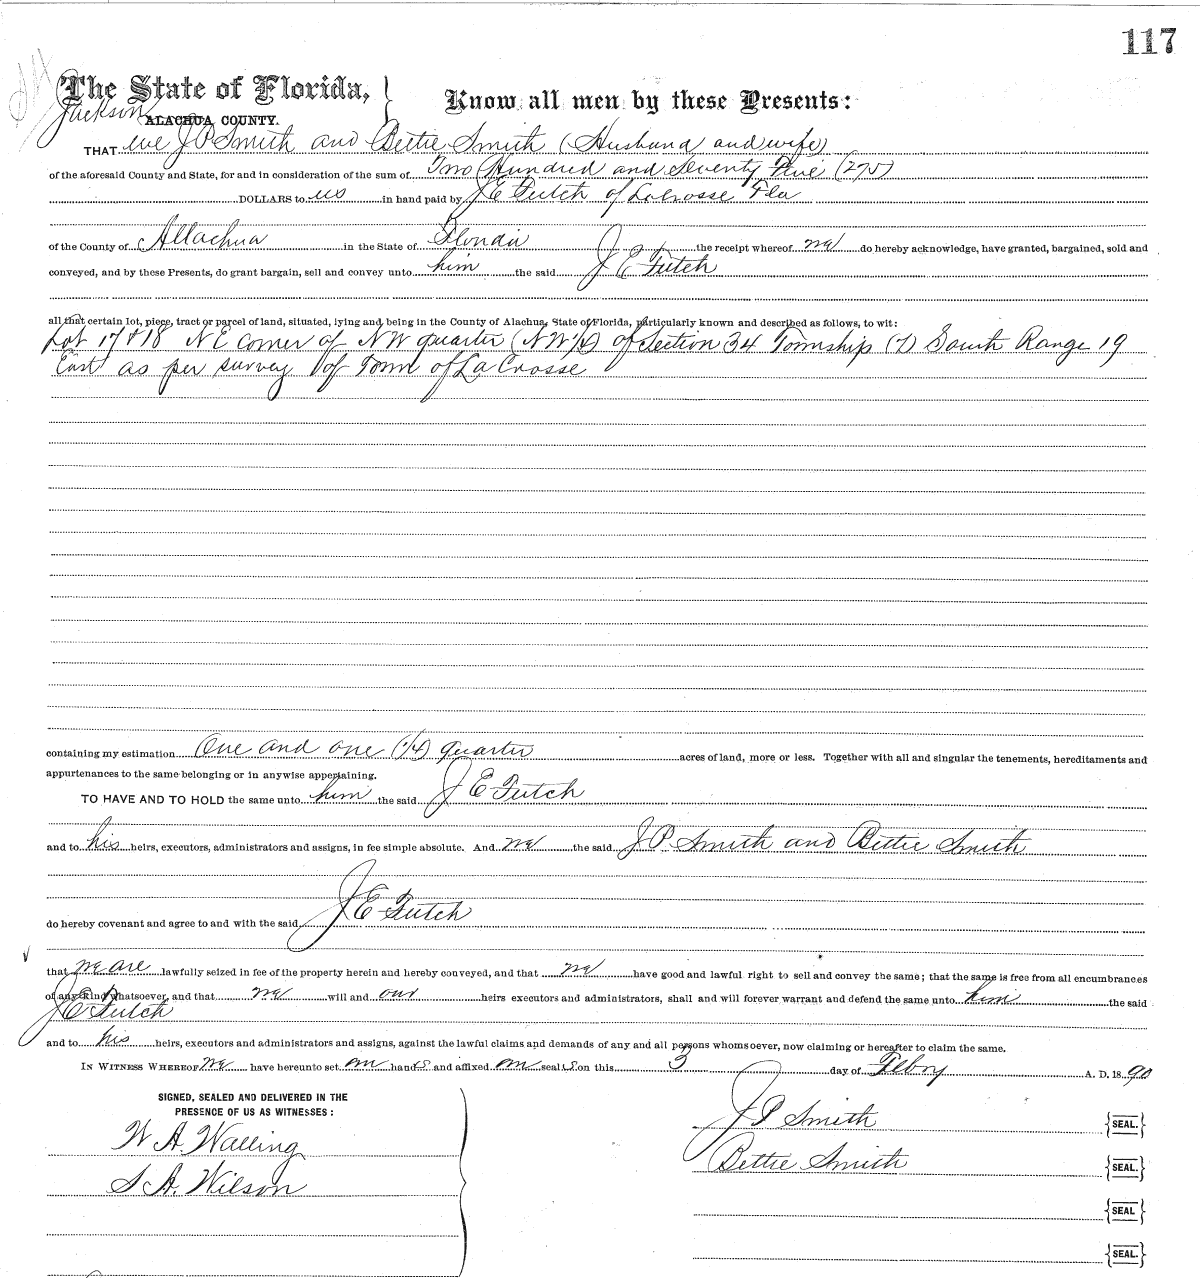 117
The State of Florida,
Jackson ALACHUA COUNTY.
Know all men by these Presents:
THAT we J P Smith and Bettie Smith (Husband and wife)
of the aforesaid County and State, for and in consideration of the sum of Two Hundred and Seventy Five (275)
DOLLARS to us in hand paid by J E Futch of LaCrosse Fla
of the County of Allachua in the State of Florida the receipt whereof we do hereby acknowledge, have granted, bargained, sold and
conveyed, and by these Presents, do grant bargain, sell and convey unto him the said J E Futch
all that certain lot, piece, tract or parcel of land, situated, lying and being in the County of Alachua, State of Florida, particularly known and described as follows, to wit:
Lot 17 & 18 NE corner of NW quarter (NW 1/4) of Section 34 Township (7) South Range 19
East as per survey of Town of La Crosse
containing my estimation One and one (1/4) quarter acres of land, more or less. Together with all and singular the tenements, hereditaments and
appurtenances to the same belonging or in anywise appertaining.
TO HAVE AND TO HOLD the same unto him the said J E Futch
and to his heirs, executors, administrators and assigns, in fee simple absolute. And we the said J P Smith and Bettie Smith
do hereby covenant and agree to and with the said J E Futch
that we are lawfully seized in fee of the property herein and hereby conveyed, and that we have good and lawful right to sell and convey the same; that the same is free from all encumbrances
of any kind whatsoever, and that we will and our heirs executors and administrators, shall and will forever warrant and defend the same unto him the said
J E Futch
and to his heirs, executors and administrators and assigns, against the lawful claims and demands of any and all persons whomsoever, now claiming or hereafter to claim the same.
IN WITNESS WHEREOF we have hereunto set our hands and affixed our seals on this 3 day of Febry A. D. 1890
SIGNED, SEALED AND DELIVERED IN THE
PRESENCE OF US AS WITNESSES:
W A. Walling
S A. Wilson
J P Smith {SEAL.}
Bettie Smith {SEAL.}
{SEAL}
{SEAL.}